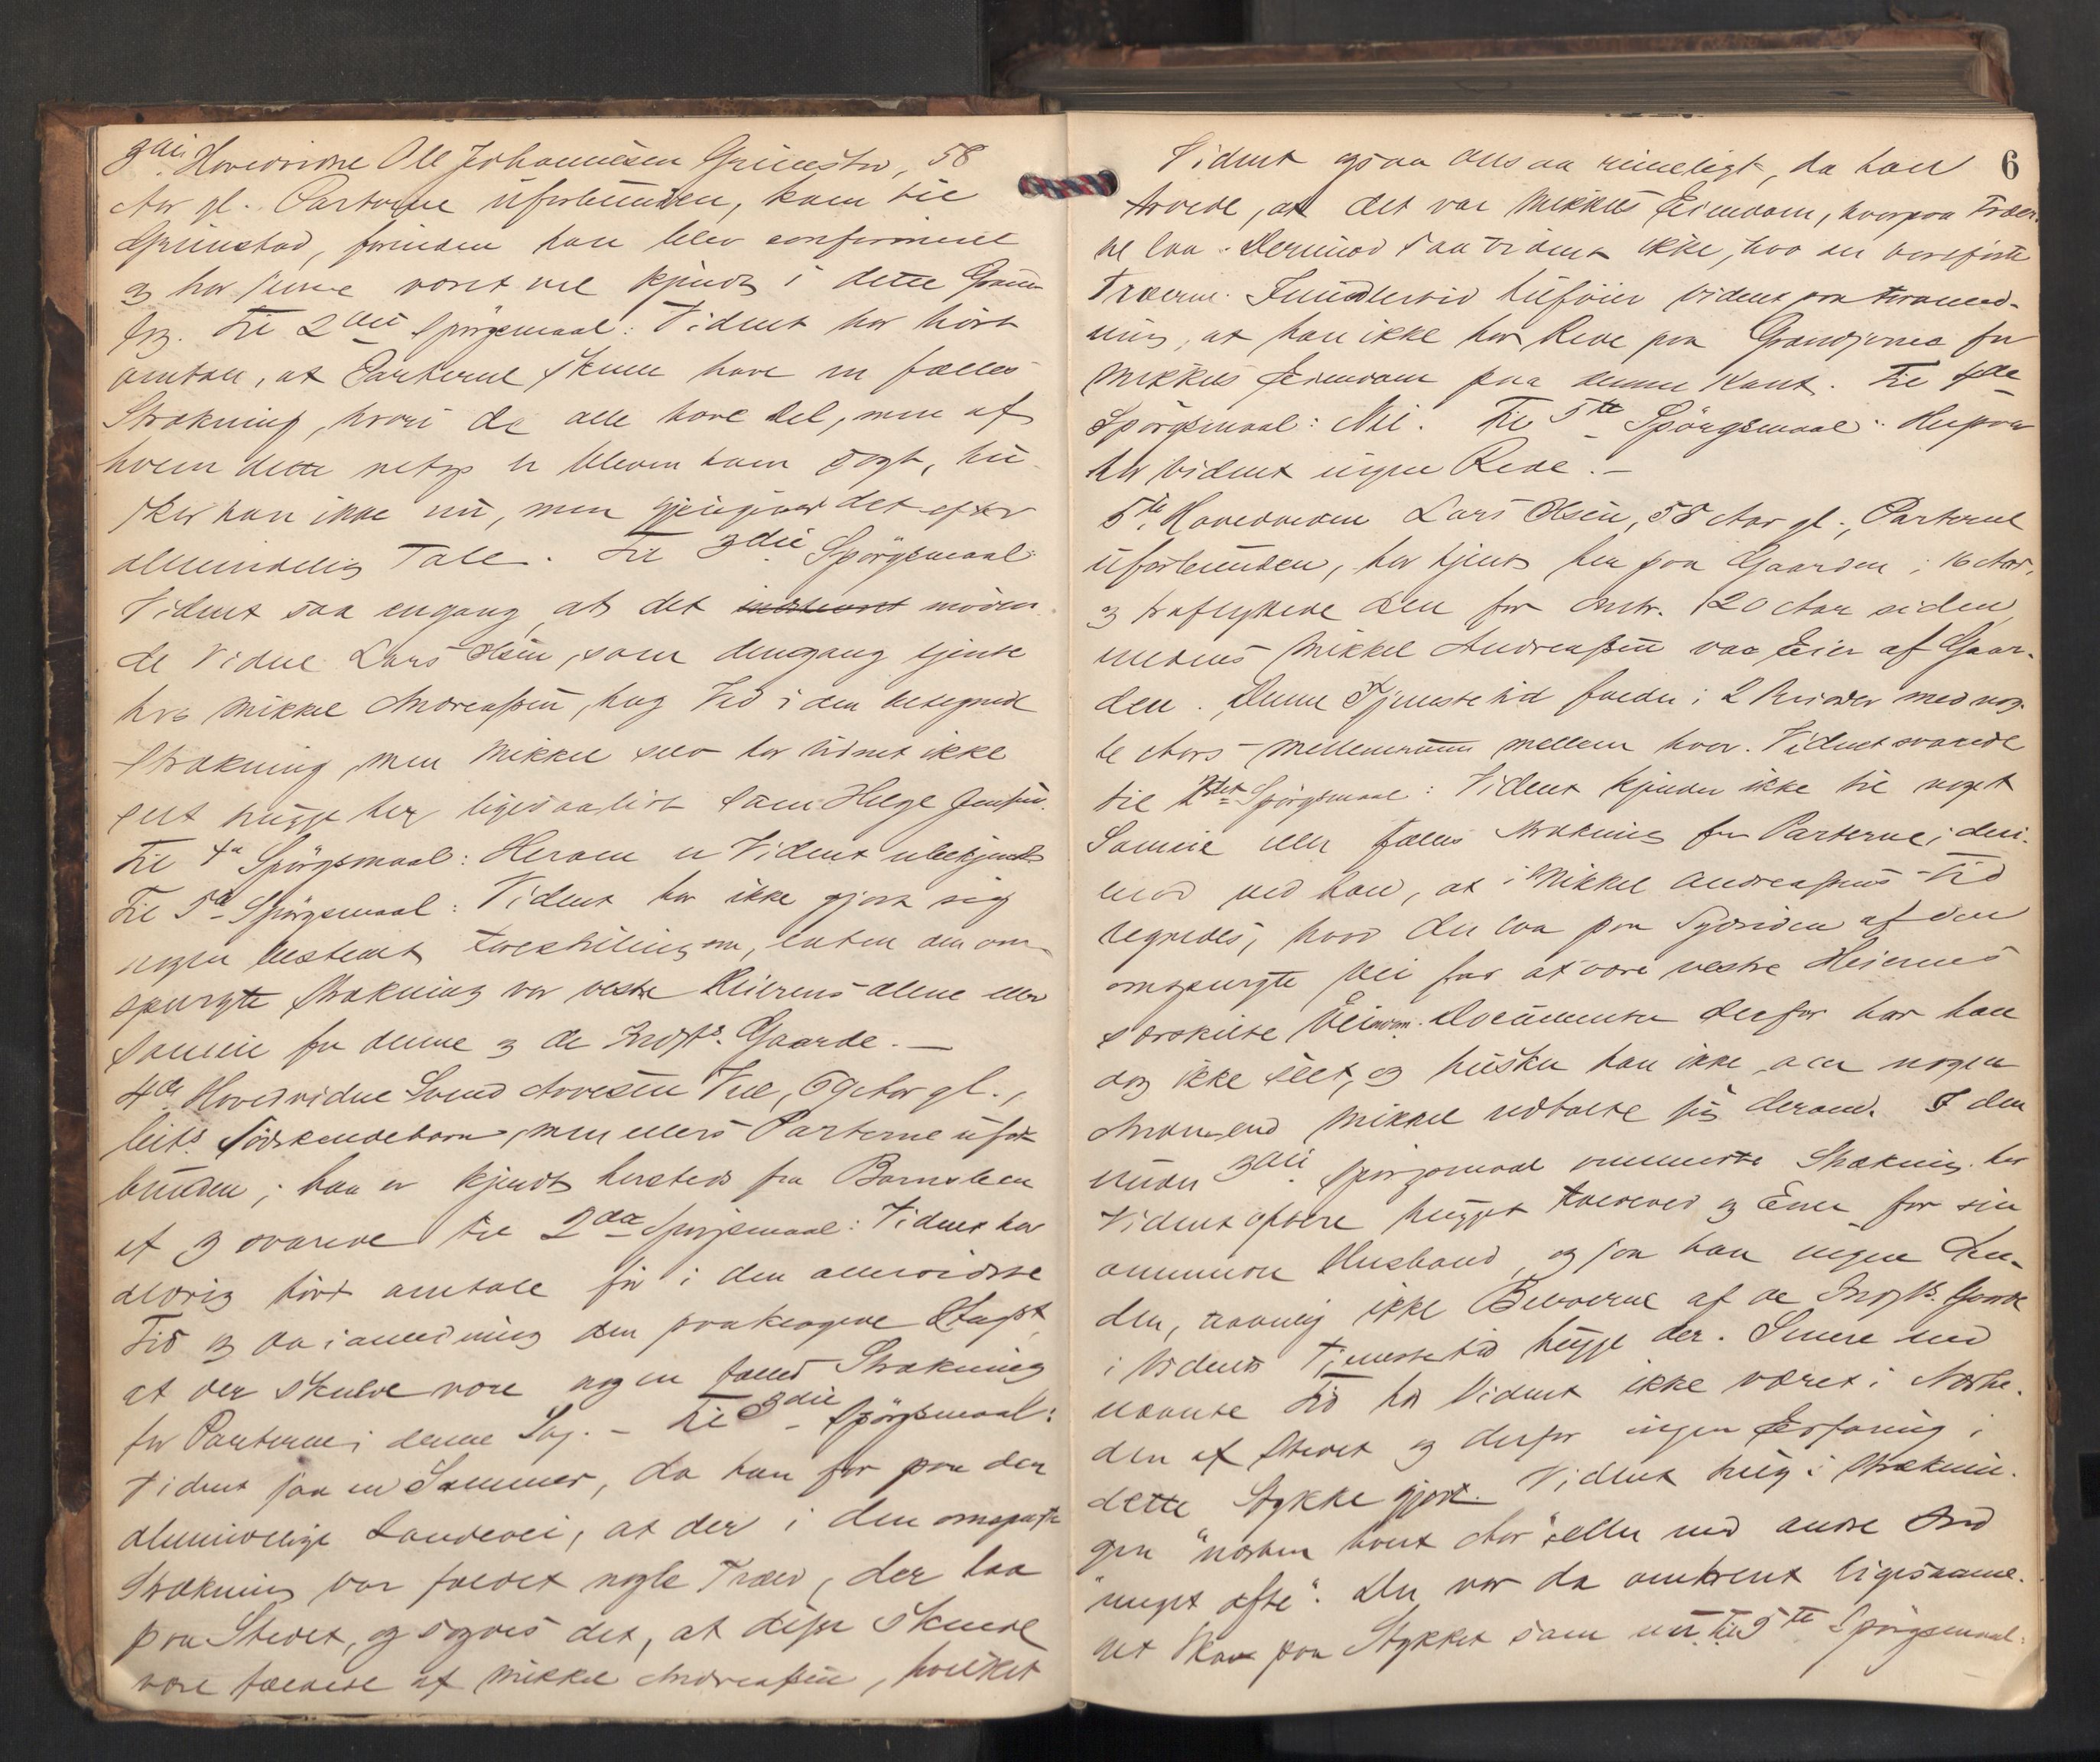 3die Hovedvidne Ole Johannesen Grimstad, 58
Aar gl. Parterne uforbunden, kom til
Grimstad, forinden han blev confirmeret
og har siden været vel kjendt i dette Grænde-
lag. Til 2det Spörgsmaal: Vidnet har hört
omtale, at Parterne skulle have en fælles
Strækning, hvori de alle have Del, men af
hvem dette netop er bleven ham sagt, hu-
sker han ikke nu, men gjengiver det efter
almindelig Tale. Til 3die Spörgsmaal:
Vidnet saa engang, at det möden-
de Vidne Lars Olsen, som dengang tjente
hos Mikkel Andreassen, hug Ved i den betegnede
Strækning, men Mikkel selv har Vidnet ikke
seet hugge her, ligesaalidt som Helge Jensen.
Til 4de Spörgsmaal: Herom er Vidnet ubekjendt.
Til 5te Spörgsmaal: Vidnet har ikke gjort sig
nogen bestemt Forestilling om, enten den om-
spurgte Strækning var vestre Heierens alene eller
Sameie for denne og de Indst. Gaarde. —
4de Hovedvidne Svend Arvesen Vee, 69 Aar gl.,
Cit.s Södskendebarn, men ellers Parterne ufor-
bunden; han er kjendt hersteds fra Barnsben
af og svarede til 2det Spörgsmaal: Vidnet har
aldrig hört omtale för i den allersidste
Tid og da i anledning den paaklagede Hugst,
at der skulde være nogen fælles Strækning
for Parterne i denne Sag. – Til 3die Spörgsmaal:
Vidnet saa en Sommer, da han för paa den
almindelige Landevei, at der i den omspurgte
Strækning var fældet nogle Træer, der laa
paa Stedet, og sagdes det, at disse skulde
være fældede af Mikkel Andreassen, hvilket
6
Vidnet ogsaa ansaa rimeligt, da han
troede, at det var Mikkels Eiendom, hvorpaa Træer-
ne laa. Derimod saa Vidnet ikke, hvo der bortförte
Træerne. Imidlertid tilföier Vidnet paa Foraned-
ning, at han ikke har Rede paa Grændserne for
Mikkels Eiendom paa denne Kant. Til 4de
Spörgsmaal: Nei. Til 5te Spörgsmaal: Herpaa
har Vidnet ingen Rede. –
5te Hovedvidne Lars Olsen, 58 Aar gl., Parterne
uforbunden, har tjent her paa Gaarden i 16 Aar,
og fraflyttede den for omtr. 20 Aar siden,
medens Mikkel Andreassen var Eier af Gaar-
den. Denne Tjenestetid falder i 2 Perioder med nog-
le Aars Mellemrum mellem hver. Vidnet svarede
til 2det Spörgsmaal: Vidnet kjender ikke til noget
Sameie eller fælles Strækning for Parterne; deri-
mod ved han, at i Mikkel Andreassens Tid
regnedes, hvad der laa paa Sydsiden af den
omspurgte Vei for at være vestre Heiernes
særskilte Eiendom. Documenter derfor har han
dog ikke seet, og husker han ikke, om nogen
Anden end Mikkel udtalte sig derom. I den
under 3die Spörgsmaal ommeldte Strækning har
Vidnet oftere hugget Fældeved og Ener for sin
ommeldte Husbond, og saa han ingen An-
den, navnlig ikke Beboerne af de Indst. Gaarde
i Vidnets Tjenestetid hugge der. Senere end
nævnte Tid har Vidnet ikke været i Nærhe-
den af Stedet og derfor ingen Erfaring i
dette Stykke gjort. Vidnet hug i Stræknin-
gen "næsten hvert Aar" eller med andre Ord
"meget ofte". Der var da omtrent ligesaame-
get Skov paa Stykket som nu. Til 5te Spörgsmaal: